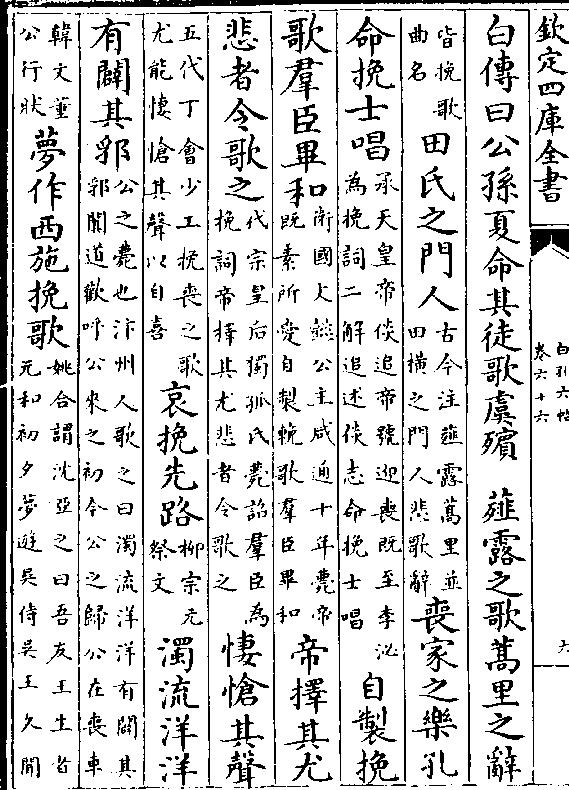 欽定四庫全書
白孔六帖
卷六十六
六
白傳曰公孫夏命其徒歌虞殯　薤露之歌蒿里之辭
皆挽歌
曲名
田氏之門人
古今注薤露蒿里並
田橫之門人悲歌辭
喪家之樂孔
命挽士唱
承天皇帝倓追帝號迎喪既至李泌
為挽詞二解追述倓志命挽士唱
自製挽
歌羣臣畢和
衛國文懿公主咸通十年薨帝
既素所愛自製挽歌羣臣畢和
帝擇其尤
悲者令歌之
代宗皇后獨孤氏薨詔羣臣為
挽詞帝擇其尤悲者令歌之
悽愴其聲
五代丁會少工挽喪之歌
尤能悽愴其聲以自喜
哀挽先路
柳宗元
祭文
濁流洋洋
有闢其郛
公之薨也汴州人歌之曰濁流洋洋有闢其
郛闐道歡呼公來之初今公之歸公在喪車
韓文董
公行狀
夢作西施挽歌
姚合謂沈亞之曰吾友王生者
元和初夕夢遊吳侍吳王久聞